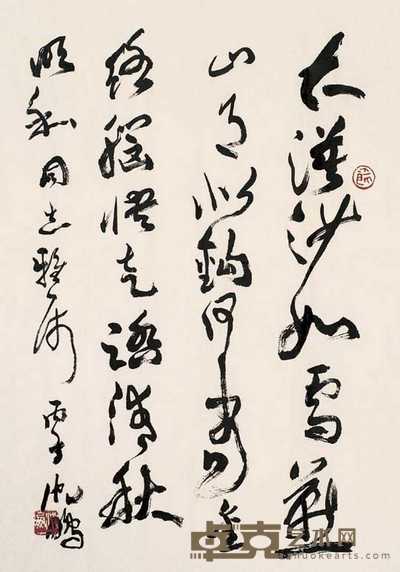 大漠沙如雪燕
山月似鈎何當金
絡腦快走踏清秋
同志雅
沈鹏
卓克艺术网
www.zhuokearts.com